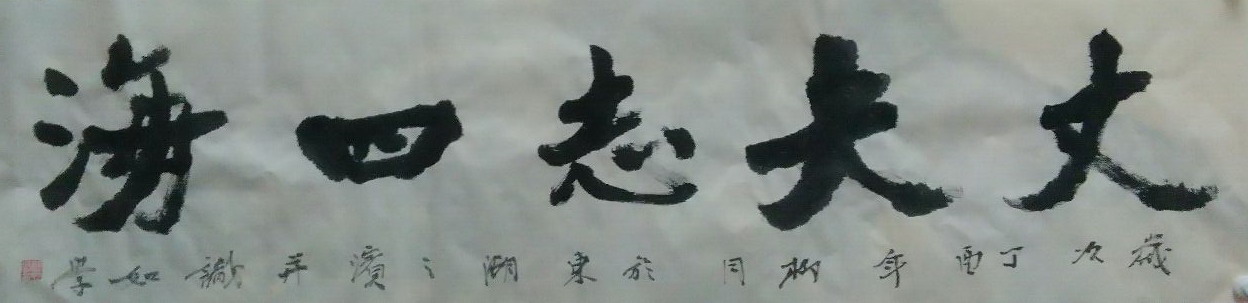 丈夫志四海
歲次丁酉年柳月於東湖之濱并識如學